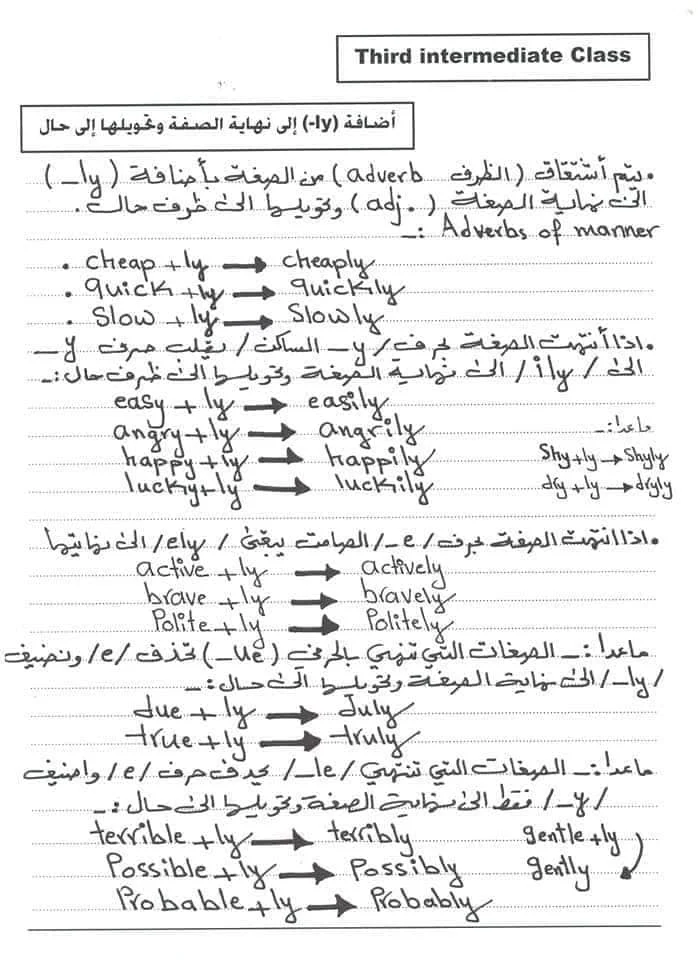 Third intermediate Class
أضافة (ly-) إلى نهاية الصفة وتحويلها إلى حال
• يتم أشتقاق ( الظرف adverb ) من الصفة بأضافة ( ly_ )
الى نهاية الصفة ( adj. ) وتحويلها الى ظرف حال .
Adverbs of manner :_
• cheap + ly → cheaply
• quick + ly → quickly
• Slow + ly → Slowly
• اذا أنتهت الصفة بحرف / y _ الساكن / يقلب حرف y _
الى / ily / الى نهاية الصفة وتحويلها الى ظرف حال :_
easy + ly → easily
angry + ly → angrily ماعدا :_
happy + ly → happily Shy + ly → Shyly
lucky + ly → luckily dry + ly → dryly
• اذا انتهت الصفة بحرف / e _/ الصامت يبقى / ely / الى نهايتها
active + ly → actively
brave + ly → bravely
Polite + ly → Politely
ماعدا :_ الصفات التي تنتهي بالحرفي ( ue _) تحذف /e/ ونضيف
/ ly _/ الى نهاية الصفة وتحويلها الى حال :_
due + ly → duly
true + ly → truly
ماعدا :_ الصفات التي تنتهي / le _/ يحذف حرف /e/ واضيف
/ y _/ فقط الى نهاية الصفة وتحويلها الى حال :_
terrible + ly → terribly gentle + ly
Possible + ly → Possibly gently
Probable + ly → Probably